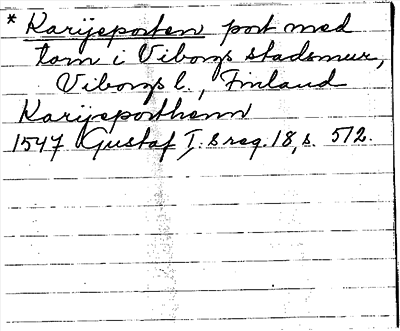 * Karijeporten port med
torn i Viborgs stadsmur,
Viborgs l., Finland
Karijeporthenn
1547 Gustaf I:s reg. 18, s. 512.